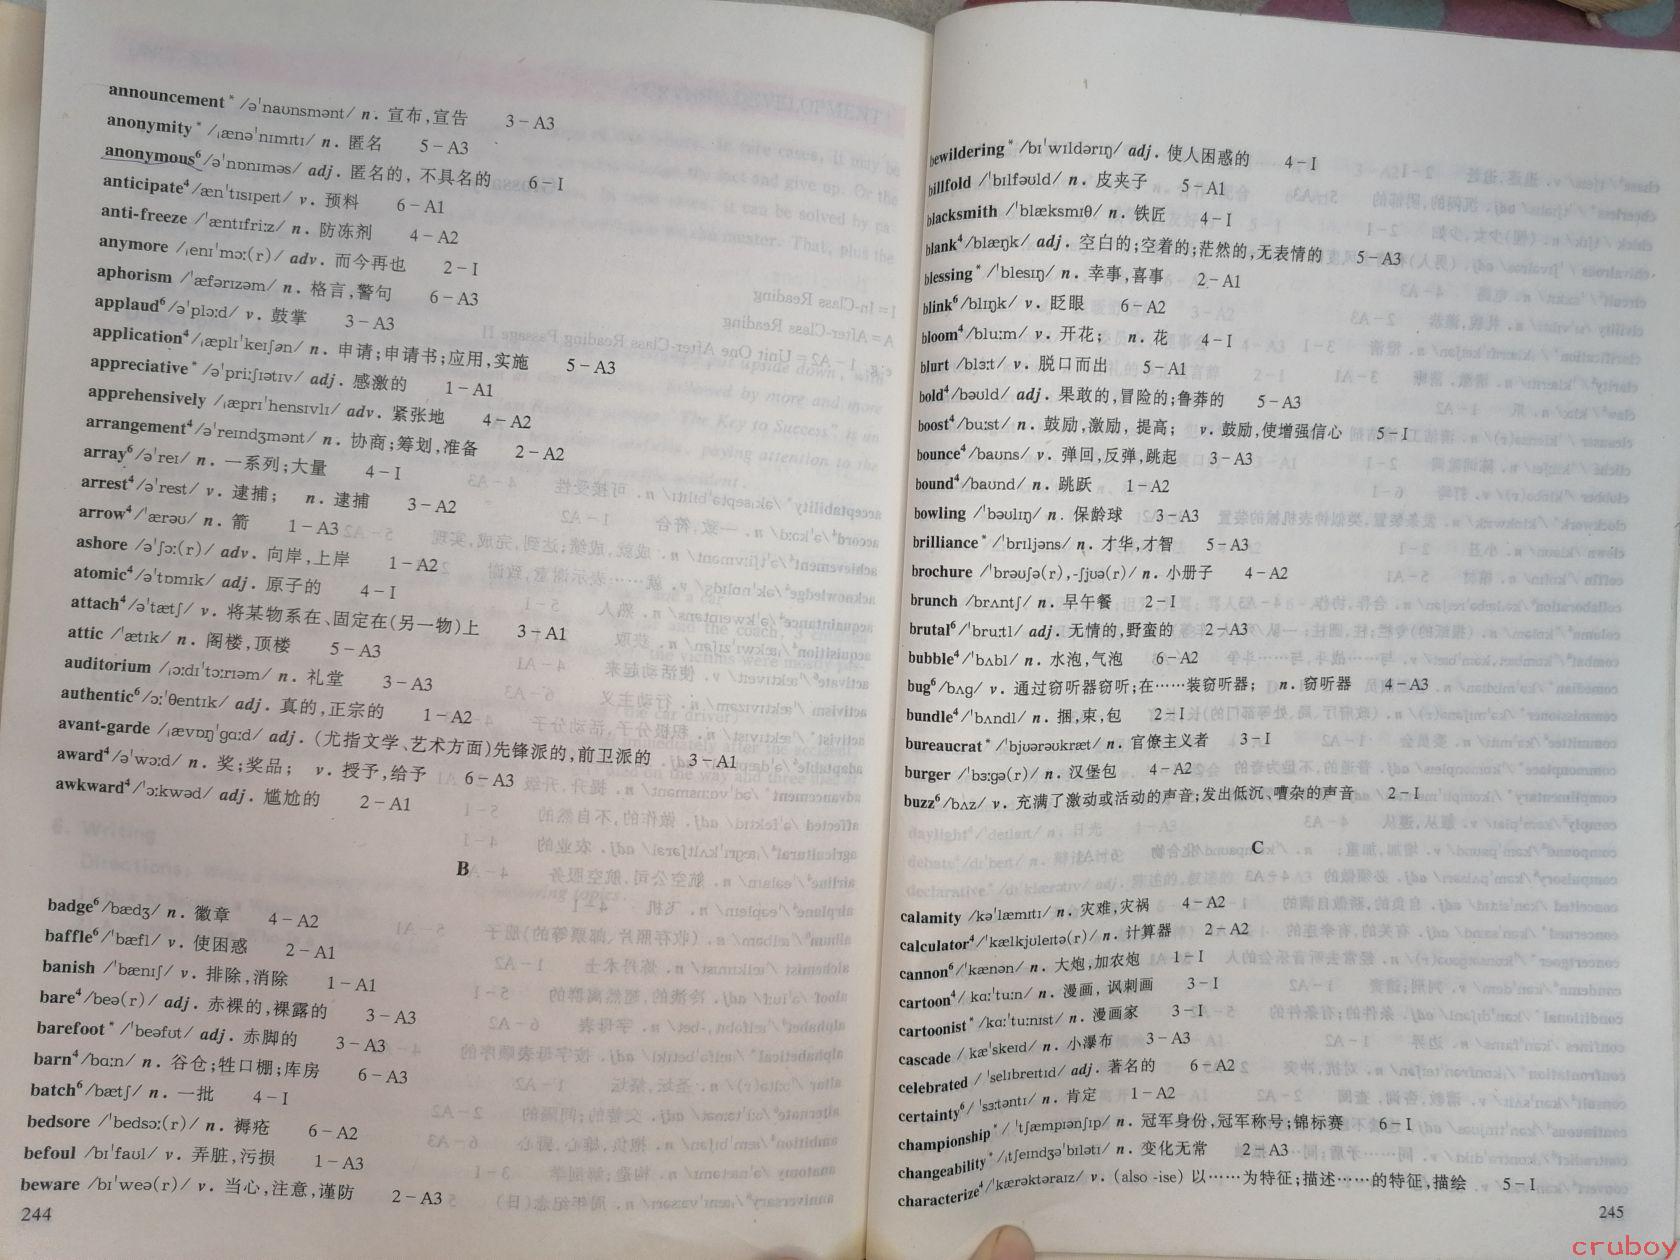 announcement* /əˈnaʊnsmənt/ n. 宣布,宣告 3-A3
anonymity* /ˌænəˈnɪmɪtɪ/ n. 匿名 5-A3
anonymous⁶/əˈnɒnɪməs/ adj. 匿名的, 不具名的 6-I
anticipate⁴/ænˈtɪsɪpeɪt/ v. 预料 6-A1
anti-freeze /ˈæntɪfriːz/ n. 防冻剂 4-A2
anymore /ˌenɪˈmɔː(r)/ adv. 而今再也 2-I
aphorism /ˈæfərɪzəm/ n. 格言,警句 6-A3
applaud⁶/əˈplɔːd/ v. 鼓掌 3-A3
application⁴/ˌæplɪˈkeɪʃən/ n. 申请;申请书;应用,实施 5-A3
appreciative* /əˈpriːʃɪətɪv/ adj. 感激的 1-A1
apprehensively /ˌæprɪˈhensɪvlɪ/ adv. 紧张地 4-A2
arrangement⁴/əˈreɪndʒmənt/ n. 协商;筹划,准备 2-A2
array⁶/əˈreɪ/ n. 一系列;大量 4-I
arrest⁴/əˈrest/ v. 逮捕; n. 逮捕 3-A2
arrow⁴/ˈærəʊ/ n. 箭 1-A3
ashore /əˈʃɔː(r)/ adv. 向岸,上岸 1-A2
atomic⁴/əˈtɒmɪk/ adj. 原子的 4-I
attach⁴/əˈtætʃ/ v. 将某物系在、固定在(另一物)上 3-A1
attic /ˈætɪk/ n. 阁楼,顶楼 5-A3
auditorium /ˌɔːdɪˈtɔːrɪəm/ n. 礼堂 3-A3
authentic⁶/ɔːˈθentɪk/ adj. 真的,正宗的 1-A2
avant-garde /ˌævɒŋˈgɑːd/ adj. (尤指文学、艺术方面)先锋派的,前卫派的 3-A1
award⁴/əˈwɔːd/ n. 奖;奖品; v. 授予,给予 6-A3
awkward⁴/ˈɔːkwəd/ adj. 尴尬的 2-A1
B
badge⁶/bædʒ/ n. 徽章 4-A2
baffle⁶/ˈbæfl/ v. 使困惑 2-A1
banish /ˈbænɪʃ/ v. 排除,消除 1-A1
bare⁴/beə(r)/ adj. 赤裸的,裸露的 3-A3
barefoot* /ˈbeəfʊt/ adj. 赤脚的 3-A3
barn⁴/bɑːn/ n. 谷仓;牲口棚;库房 6-A3
batch⁶/bætʃ/ n. 一批 4-I
bedsore /ˈbedsɔː(r)/ n. 褥疮 6-A2
befoul /bɪˈfaʊl/ v. 弄脏,污损 1-A3
beware /bɪˈweə(r)/ v. 当心,注意,谨防 2-A3
244
bewildering* /bɪˈwɪldərɪŋ/ adj. 使人困惑的 4-I
billfold /ˈbɪlfəʊld/ n. 皮夹子 5-A1
blacksmith /ˈblæksmɪθ/ n. 铁匠 4-I
blank⁴/blæŋk/ adj. 空白的;空着的;茫然的,无表情的 5-A3
blessing* /ˈblesɪŋ/ n. 幸事,喜事 2-A1
blink⁶/blɪŋk/ v. 眨眼 6-A2
bloom⁴/bluːm/ v. 开花; n. 花 4-I
blurt /blɜːt/ v. 脱口而出 5-A1
bold⁴/bəʊld/ adj. 果敢的,冒险的;鲁莽的 5-A3
boost⁴/buːst/ n. 鼓励,激励, 提高; v. 鼓励,使增强信心 5-I
bounce⁴/baʊns/ v. 弹回,反弹,跳起 3-A3
bound⁴/baʊnd/ n. 跳跃 1-A2
bowling /ˈbəʊlɪŋ/ n. 保龄球 3-A3
brilliance* /ˈbrɪljəns/ n. 才华,才智 5-A3
brochure /ˈbrəʊʃə(r),-ʃjʊə(r)/ n. 小册子 4-A2
brunch /brʌntʃ/ n. 早午餐 2-I
brutal⁶/ˈbruːtl/ adj. 无情的,野蛮的 2-A3
bubble⁴/ˈbʌbl/ n. 水泡,气泡 6-A2
bug⁶/bʌg/ v. 通过窃听器窃听;在……装窃听器; n. 窃听器 4-A3
bundle⁴/ˈbʌndl/ n. 捆,束,包 2-I
bureaucrat* /ˈbjʊərəʊkræt/ n. 官僚主义者 3-I
burger /ˈbɜːgə(r)/ n. 汉堡包 4-A2
buzz⁶/bʌz/ v. 充满了激动或活动的声音;发出低沉、嘈杂的声音 2-I
C
calamity /kəˈlæmɪtɪ/ n. 灾难,灾祸 4-A2
calculator⁴/ˈkælkjʊleɪtə(r)/ n. 计算器 2-A2
cannon⁶/ˈkænən/ n. 大炮,加农炮 1-I
cartoon⁴/kɑːˈtuːn/ n. 漫画, 讽刺画 3-I
cartoonist* /kɑːˈtuːnɪst/ n. 漫画家 3-I
cascade /kæˈskeɪd/ n. 小瀑布 3-A3
celebrated /ˈselɪbreɪtɪd/ adj. 著名的 6-A2
certainty⁶/ˈsɜːtəntɪ/ n. 肯定 1-A2
championship* /ˈtʃæmpɪənʃɪp/ n. 冠军身份,冠军称号;锦标赛 6-I
changeability* /ˌtʃeɪndʒəˈbɪlətɪ/ n. 变化无常 2-A3
characterize⁴/ˈkærəktəraɪz/ v. (also -ise) 以……为特征;描述……的特征,描绘 5-I
245
cruboy